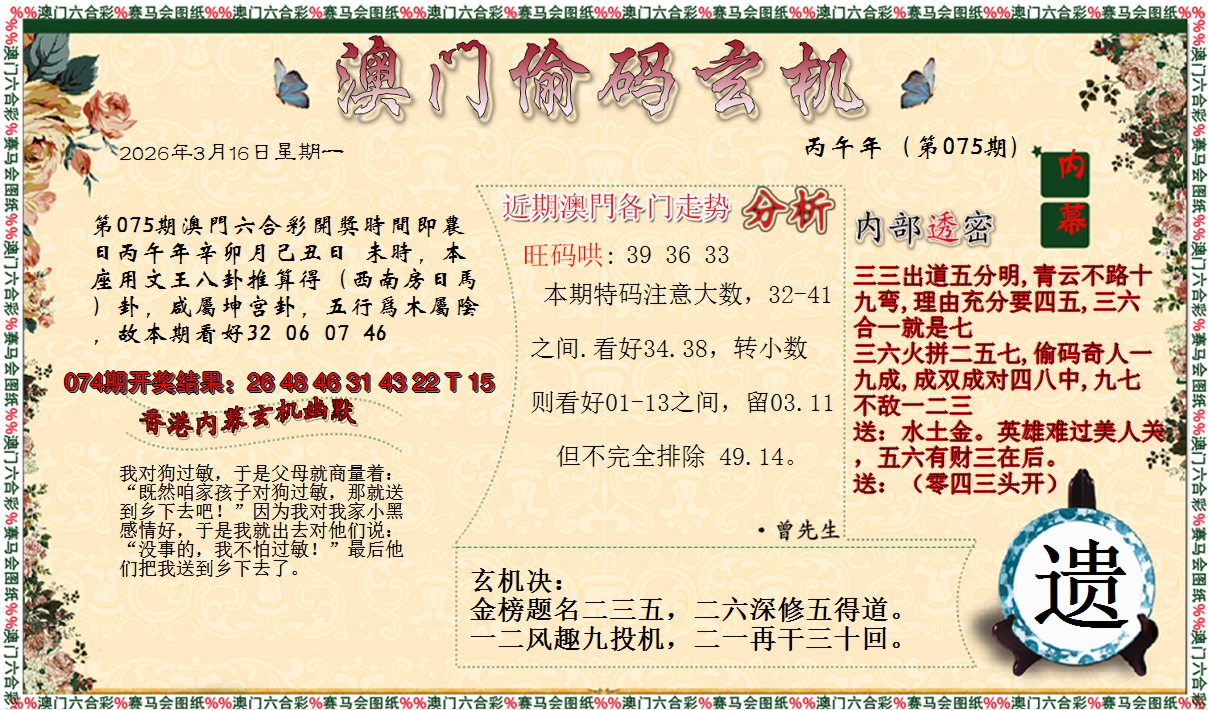 %%澳门六合彩%赛马会图纸%%澳门六合彩%赛马会图纸%%澳门六合彩%赛马会图纸%%澳门六合彩%赛马会图纸%%澳门六合彩%赛马会图纸%%澳门六合彩%赛马会图纸%%
澳门偷码玄机
2026年3月16日星期一
丙午年（第075期）
第075期澳門六合彩開獎時間即農
日丙午年辛卯月己丑日 未時，本
座用文王八卦推算得（西南房日馬
）卦，咸屬坤宫卦，五行爲木屬陰
，故本期看好32 06 07 46
074期开奖结果：26 48 46 31 43 22 T 15
香港内幕玄机幽默
我对狗过敏，于是父母就商量着：
“既然咱家孩子对狗过敏，那就送
到乡下去吧！”因为我对我家小黑
感情好，于是我就出去对他们说：
“没事的，我不怕过敏！”最后他
们把我送到乡下去了。
近期澳門各门走势 分析
旺码哄: 39 36 33
本期特码注意大数，32-41
之间.看好34.38，转小数
则看好01-13之间，留03.11
但不完全排除 49.14。
·曾先生
内幕
内部透密
三三出道五分明,青云不路十
九弯,理由充分要四五,三六
合一就是七
三六火拼二五七,偷码奇人一
九成,成双成对四八中,九七
不敌一二三
送：水土金。英雄难过美人关
，五六有财三在后。
送：（零四三头开）
玄机决：
金榜题名二三五，二六深修五得道。
一二风趣九投机，二一再干三十回。
遗
%%澳门六合彩%赛马会图纸%%澳门六合彩%赛马会图纸%%澳门六合彩%赛马会图纸%%澳门六合彩%赛马会图纸%%澳门六合彩%赛马会图纸%%澳门六合彩%赛马会图纸%%
%%澳门六合彩%赛马会图纸%%澳门六合彩%赛马会图纸%%澳门六合彩%赛马会图纸%%澳门六合彩
%%澳门六合彩%赛马会图纸%%澳门六合彩%赛马会图纸%%澳门六合彩%赛马会图纸%%澳门六合彩